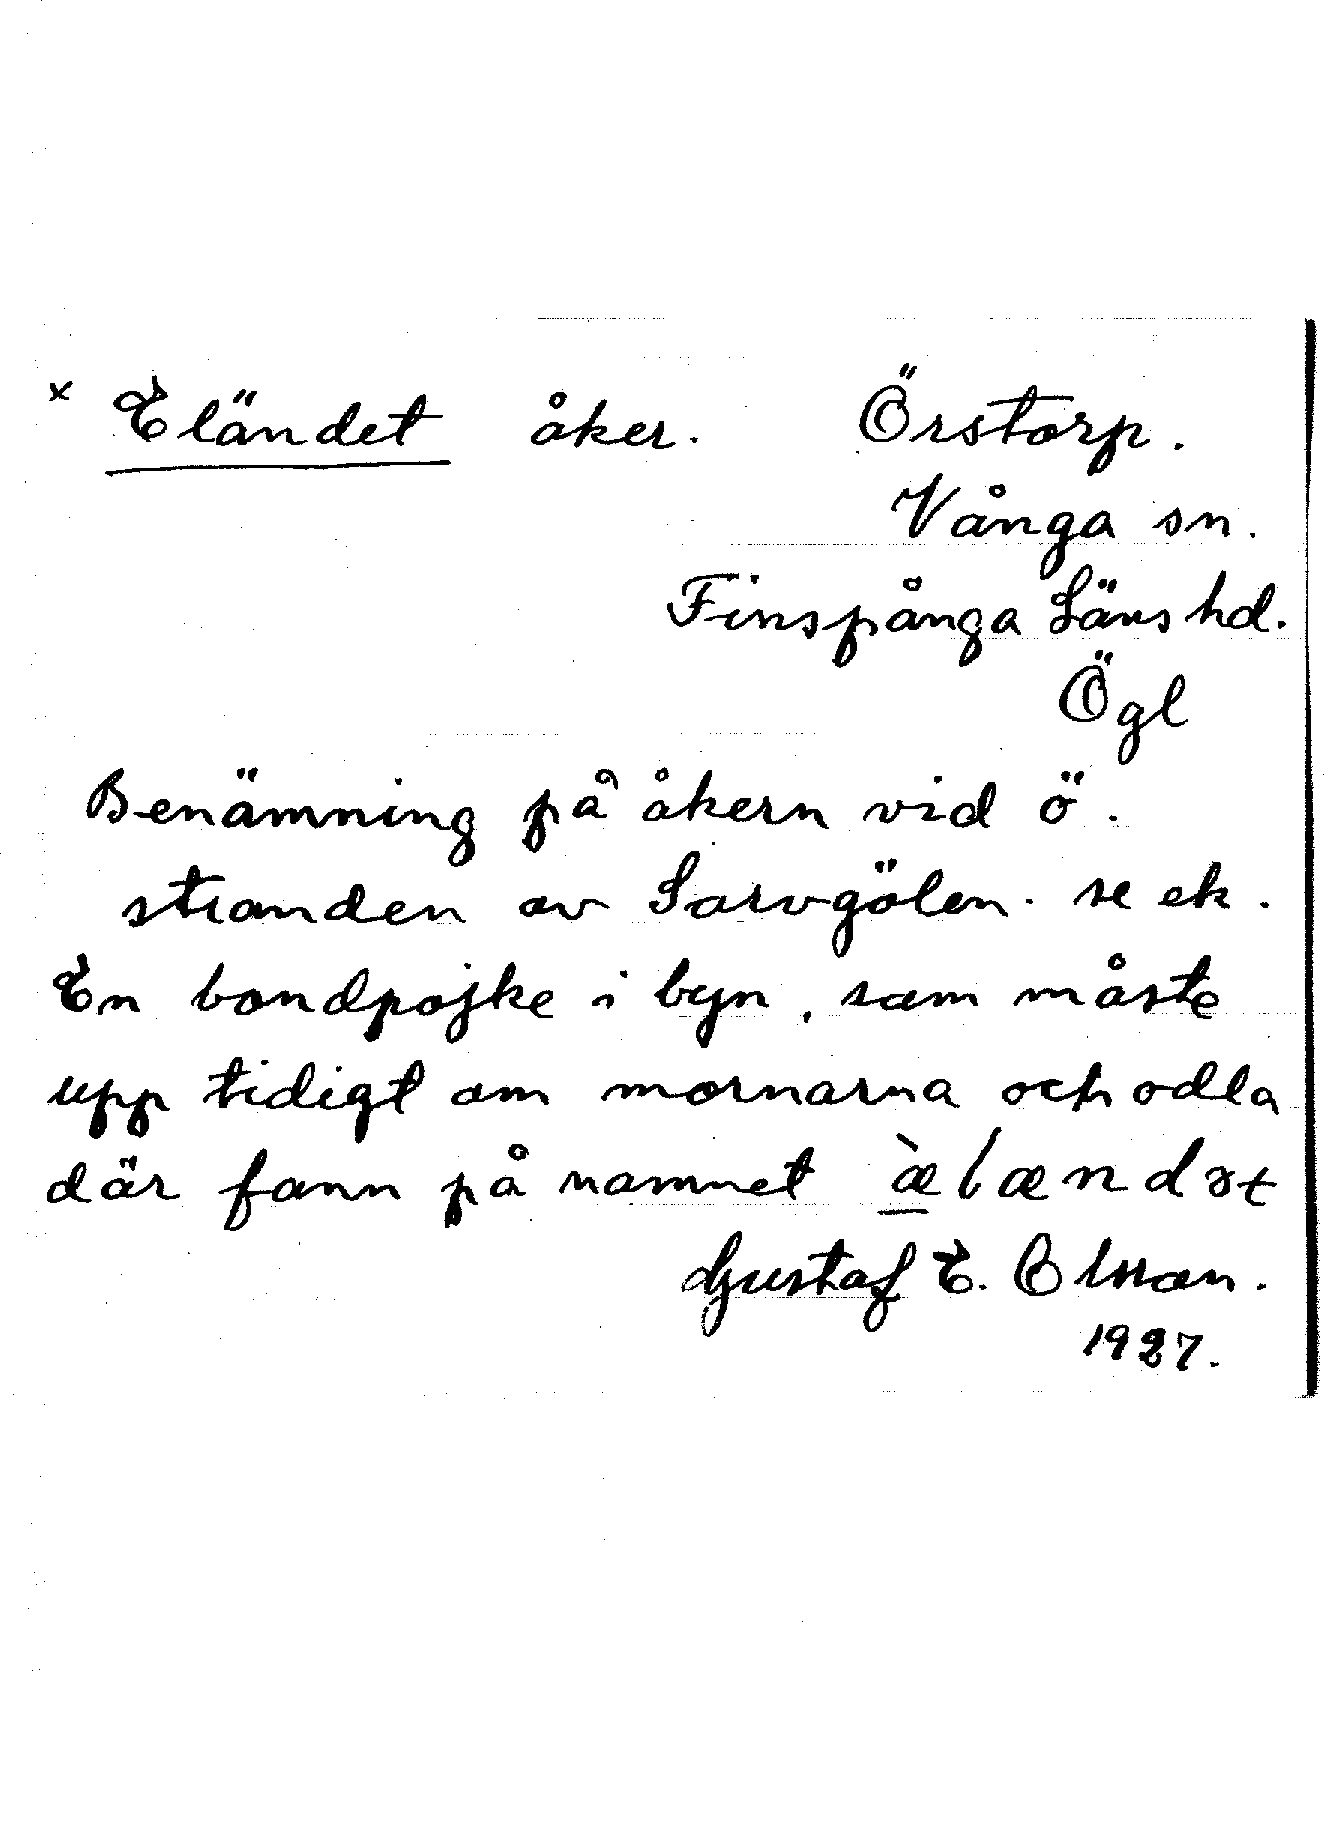 × Eländet åker. Örstorp.
Vånga sn.
Finspånga Läns hd.
Ögl
Benämning på åkern vid ö.
stranden av Sarvgölen. se ek.
En bondpojke i byn, som måste
upp tidigt om mornarna och odla
där fann på namnet æ̀lændət
Gustaf E. Olsson.
1927.